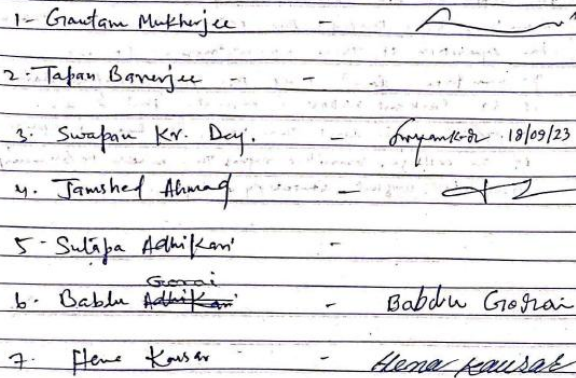 1- Gautam Mukherjee -
2. Tapan Banerjee - -
3. Swapan Kr. Dey. - 18/09/23
4. Jamshed Ahmad -
5- Sutapa Adhikari -
Gorai
6. Bablu Adhikari - Bablu Gorai
7. Hena Kausar - Hena Kausar